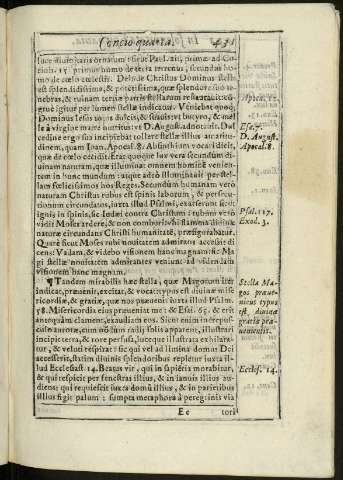 Concio quarta. 431
luce diuinitatis ornatum esse Paul. ait, primæ ad Co-
rinth. 15. primus homo de terra terrenus, secundus ho-
mo de cœlo cœlestis. Deinde Christus Dominus stella
est splendidissima, & potentissima, quæ splendore suo te-
nebras, & ruinam tertiæ partis stellarum
tigitur per lumen stellæ indicatur. Veniebat quoq;
Dominus Iesus totus dulcis, & suauis: vt butyro, & mel-
le à virgine matre nutritur: vt D. August. adnotauit. Dul
cedine ergo sua incipiebat tollere stellæ illius amaritu-
dinem, quam Ioan. Apocal. 8. Absinthium vocari dicit,
quæ de cœlo cecidit. Erat quoque lux vera secundum di-
uinam naturam, quæ illuminat omnem hominem venien-
tem in hunc mundum: atque adeò illuminabit per stel-
lam fœlicissimos hos Reges. Secundùm humanam verò
naturam Christus rubus est spinis laborum, & persecu-
tionum circundatus, iuxta illud Psalmi, exarserunt sicut
ignis in spinis, sic Iudæi contra Christum: rubum verò
vidit Moses ardere, & non comburi: vbi flamma diuinæ
naturæ circundans Christi humanitatē, præfigurabatur.
Quare sicut Moses rubi nouitatem admirans accessit di-
cens: Vadam, & videbo visionem hanc magnam: sic Ma
gi stellæ nouitatem admirantes veniunt ad videndam
visionem hanc magnam.
¶ Tandem mirabilis hæc stella, quæ Magorum iter
indicat, præuenit, excitat, & vocat: typus est diuinæ mise
ricordiæ, & gratiæ, quæ nos præuenit: iuxta illud Psalm.
58. Misericordia eius præueniet me: & Esai. 65. & erit
antequàm clament, exaudiam eos. Sicut enim in crepus-
culo auroræ, cùm nōdum radij solis apparent, illustrari
incipit terra, & rore perfusa, lucisque illustrata exhilara-
tur, & veluti respirat: sic qui vel ad limina domus Dei
accesserit, statim diuinis splendoribus repletur iuxta il-
lud Ecclesiast. 14. Beatus vir, qui in sapiētia morabitur,
& qui respicit per fenestras illius, & in ianuis illius au-
diens: qui requiescit iuxta domū illius, & in parietibus
illius figit palum: sumpta metaphora à peregrinis via
Ee tori
Apoca. 12.
Esa. 7.
D. August.
Apocal. 8.
Psal. 117.
Exod. 3.
Stella Ma-
gos præue-
nicus typus
est, diuinæ
gratiæ præ-
uenientis.
Ecclesi. 14.